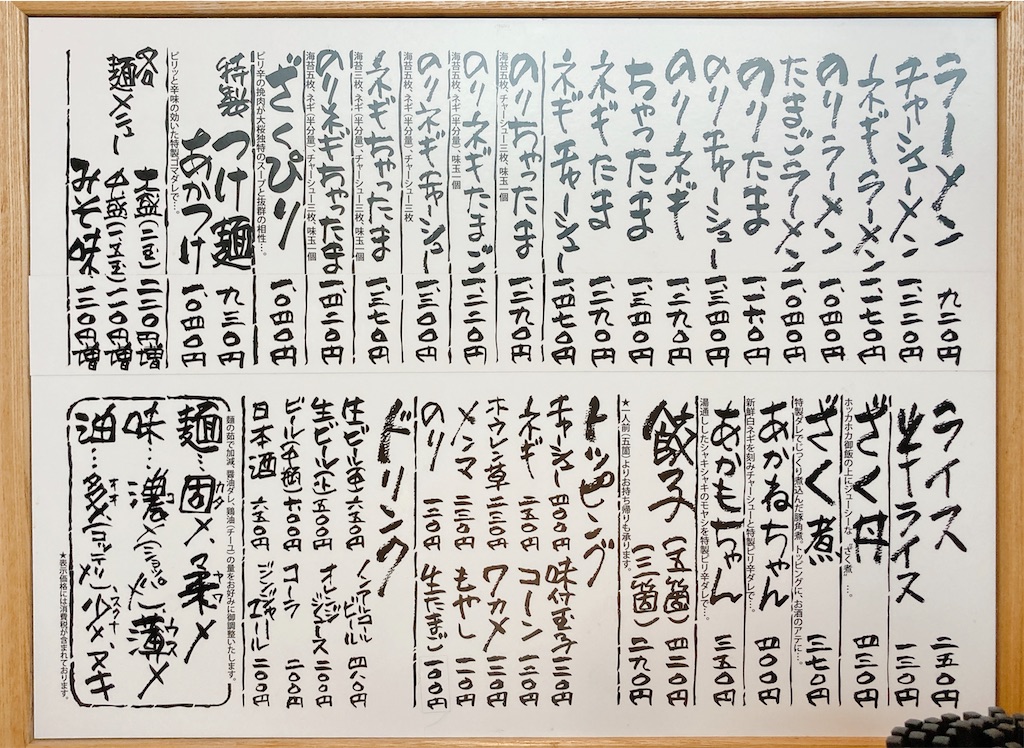 ラーメン 九二〇円
チャーシューメン 一、二二〇円
ネギラーメン 一、一七〇円
のりラーメン 一、〇四〇円
たまごラーメン 一、〇四〇円
のりたま 一、一六〇円
のりチャーシュー 一、三四〇円
のりネギ 一、二九〇円
ちゃったま 一、三四〇円
ネギたま 一、二九〇円
ネギチャーシュー 一、四七〇円
のりちゃったま 一、二九〇円
海苔五枚、チャーシュー三枚、味玉一個
のりネギたまご 一、二二〇円
海苔五枚、ネギ(半分量)、味玉一個
のりネギチャーシュー 一、三〇〇円
海苔五枚、ネギ(半分量)、チャーシュー三枚
ネギちゃったま 一、三七〇円
ネギ(半分量)、チャーシュー三枚、味玉一個
のりネギちゃったま 一、四二〇円
海苔三枚、ネギ(半分量)、チャーシュー三枚、味玉一個
ざくぴり 一、〇四〇円
ピリ辛の挽肉が大桜独特のスープと抜群の相性…。
特製つけ麺 九三〇円
あかつけ 一、〇四〇円
ピリッと辛味の効いた特製ゴマダレで…。
各麺メニュー
大盛(二玉) 二二〇円増
中盛(一.五玉) 一一〇円増
みそ味… 一二〇円増
ライス 二五〇円
半ライス 一三〇円
ざく丼 四三〇円
ホッカホカ御飯の上にジューシーな、“ざく煮”…。
ざく煮 三七〇円
特製ダレでじっくり煮込んだ豚角煮。トッピングに、お酒のアテに…。
あかねちゃん 四〇〇円
新鮮白ネギを刻みチャーシューと特製ピリ辛ダレで…。
あかもちゃん 三五〇円
湯通ししたシャキシャキのモヤシを特製ピリ辛ダレで…。
餃子(五箇) 四二〇円
(三箇) 二九〇円
★一人前(五箇)よりお持ち帰りも承ります。
トッピング
チャーシュー 四〇〇円
味付玉子 一二〇円
ネギ 二五〇円
コーン 一二〇円
ホウレン草 二三〇円
ワカメ 一二〇円
メンマ 二三〇円
もやし 一一〇円
のり 一二〇円
生たまご 一〇〇円
ドリンク
生ビール(中) 六五〇円
ノンアルコールビール 四八〇円
生ビール(小) 五〇〇円
オレンジジュース 二〇〇円
ビール(中瓶) 六〇〇円
コーラ 二〇〇円
日本酒 六五〇円
ジンジャエール 二〇〇円
麺の茹で加減、醤油ダレ、鶏油(チーユ)の量をお好みに御調整いたします。
麺…固カタメ、柔ヤワメ
味…濃コイメ(ショッパメ)、薄ウスメ
油…多オオメ(コッテリメ)、少スクナメ、ヌキ
★表示価格には消費税が含まれております。